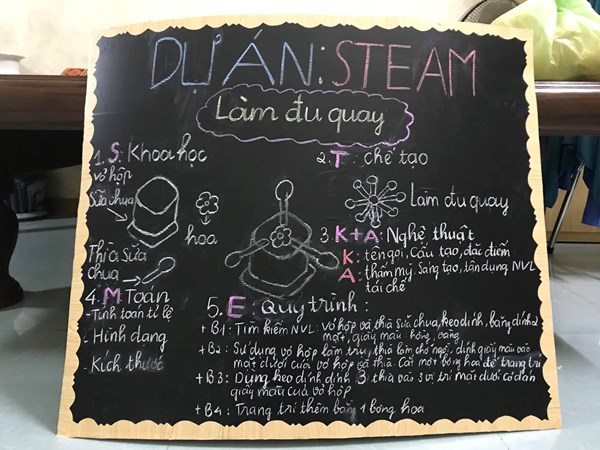 DỰ ÁN: STEAM
Làm đu quay
1. S: Khoa học
vỏ hộp
Sữa chua
hoa
Thìa Sữa
chua
2. T: chế tạo
Làm đu quay
3. K+A: Nghệ thuật
K: tên gọi, Cấu tạo, đặc điểm
A: thẩm mỹ, Sáng tạo, tận dụng NVL
tái chế
4. M Toán
- Tính toán tỉ lệ
- Hình dạng
- Kích thước
5. E: Quy trình:
+ B1: Tìm kiếm NVL: Vỏ hộp và thìa sữa chua, keo dính, băng dính 2
mặt, giấy màu hồng, vàng
+ B2: Sử dụng vỏ hộp làm trụ, thìa làm chỗ ngồi, dính giấy màu vào
mặt dưới của vỏ hộp và thìa. Cắt một bông hoa để trang trí
+ B3: Dùng keo dính dính 3 thìa vào 3 vị trí mặt dưới có dán
giấy màu của vỏ hộp
+ B4: Trang trí thêm bằng 1 bông hoa